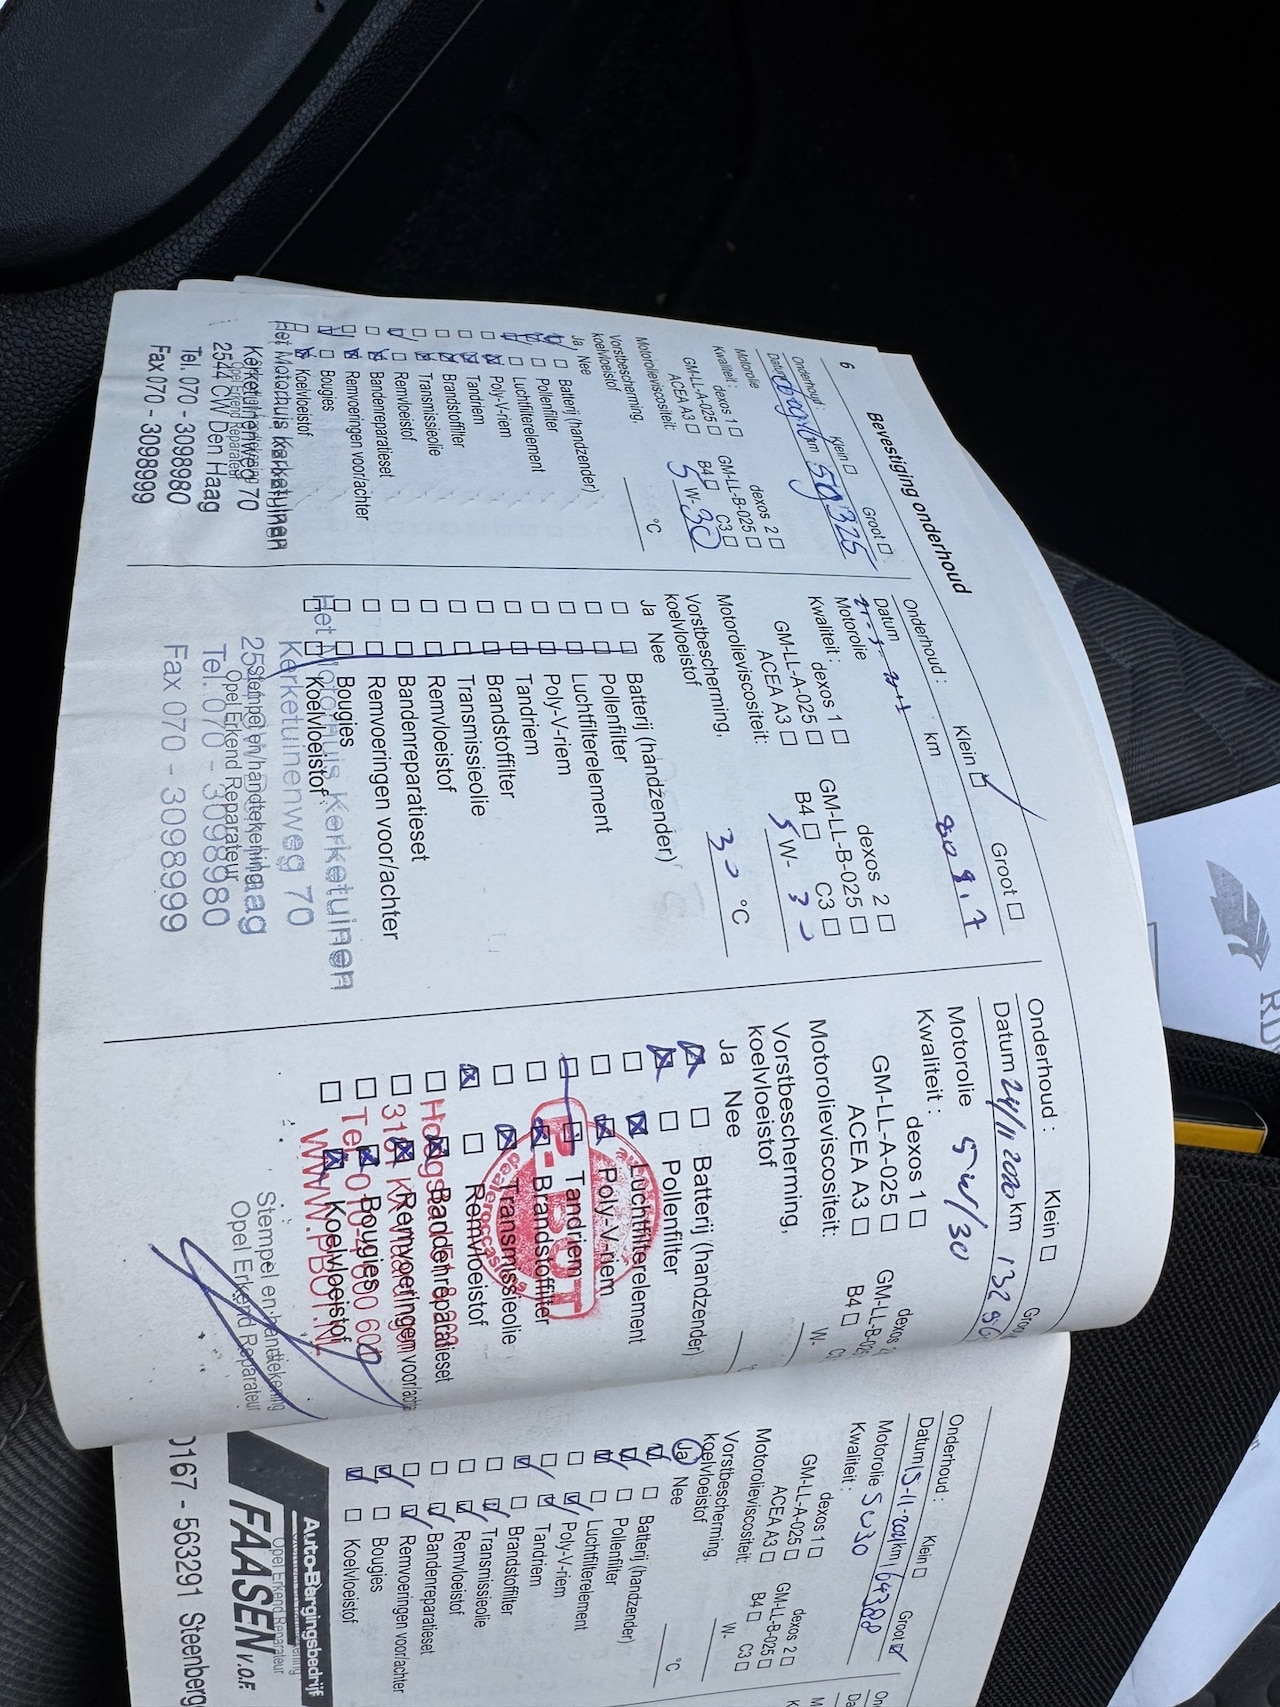 6
Bevestiging onderhoud
Onderhoud : Klein Groot
Datum km 59325
Motorolie
Kwaliteit : dexos 1 dexos 2
GM-LL-A-025 GM-LL-B-025
ACEA A3 B4 C3
Motorolieviscositeit: 5 W- 30
Vorstbescherming,
koelvloeistof °C
Ja Nee
Batterij (handzender)
Pollenfilter
Luchtfilterelement
Poly-V-riem
Tandriem
Brandstoffilter
Transmissieolie
Remvloeistof
Bandenreparatieset
Remvoeringen voor/achter
Bougies
Koelvloeistof
Het Motorhuis Kerketuinen
Kerketuinenweg 70
Opel Erkend Reparateur
2544 CW Den Haag
Tel. 070 - 3098980
Fax 070 - 3098999
Onderhoud : Klein Groot
Datum km
Motorolie
Kwaliteit : dexos 1 dexos 2
GM-LL-A-025 GM-LL-B-025
ACEA A3 B4 C3
Motorolieviscositeit: 5 W- 30
Vorstbescherming,
koelvloeistof 30 °C
Ja Nee
Batterij (handzender)
Pollenfilter
Luchtfilterelement
Poly-V-riem
Tandriem
Brandstoffilter
Transmissieolie
Remvloeistof
Bandenreparatieset
Remvoeringen voor/achter
Bougies
Koelvloeistof
Het Motorhuis Kerketuinen
Kerketuinenweg 70
Stempel en/handtekening
Opel Erkend Reparateur
Tel. 070 - 3098980
Fax 070 - 3098999
Onderhoud : Klein
Datum 24/11/2020 km
Motorolie 5W/30
Kwaliteit : dexos 1 dexos
GM-LL-A-025
ACEA A3 B4
Motorolieviscositeit: W-
Vorstbescherming,
koelvloeistof
Ja Nee
Batterij (handzender)
Pollenfilter
Luchtfilterelement
Poly-V-riem
Tandriem
Brandstoffilter
Transmissieolie
Remvloeistof
Bandenreparatieset
Remvoeringen
Bougies
Koelvloeistof
P-BOT
WWW.PBOT.NL
Stempel en handtekening
Opel Erkend Reparateur
Onderhoud : Klein Groot
Datum 15-11-2021 km 164388
Motorolie 5W30
Kwaliteit : dexos 1 dexos 2
GM-LL-A-025 GM-LL-B-025
ACEA A3 B4 C3
Motorolieviscositeit: W-
Vorstbescherming,
koelvloeistof °C
Ja Nee
Batterij (handzender)
Pollenfilter
Luchtfilterelement
Poly-V-riem
Tandriem
Brandstoffilter
Transmissieolie
Remvloeistof
Bandenreparatieset
Remvoeringen voor/achter
Bougies
Koelvloeistof
Opel Erkend Reparateur
Auto-Bergingsbedrijf
FAASEN v.o.f.
0167 - 563291 Steenberg